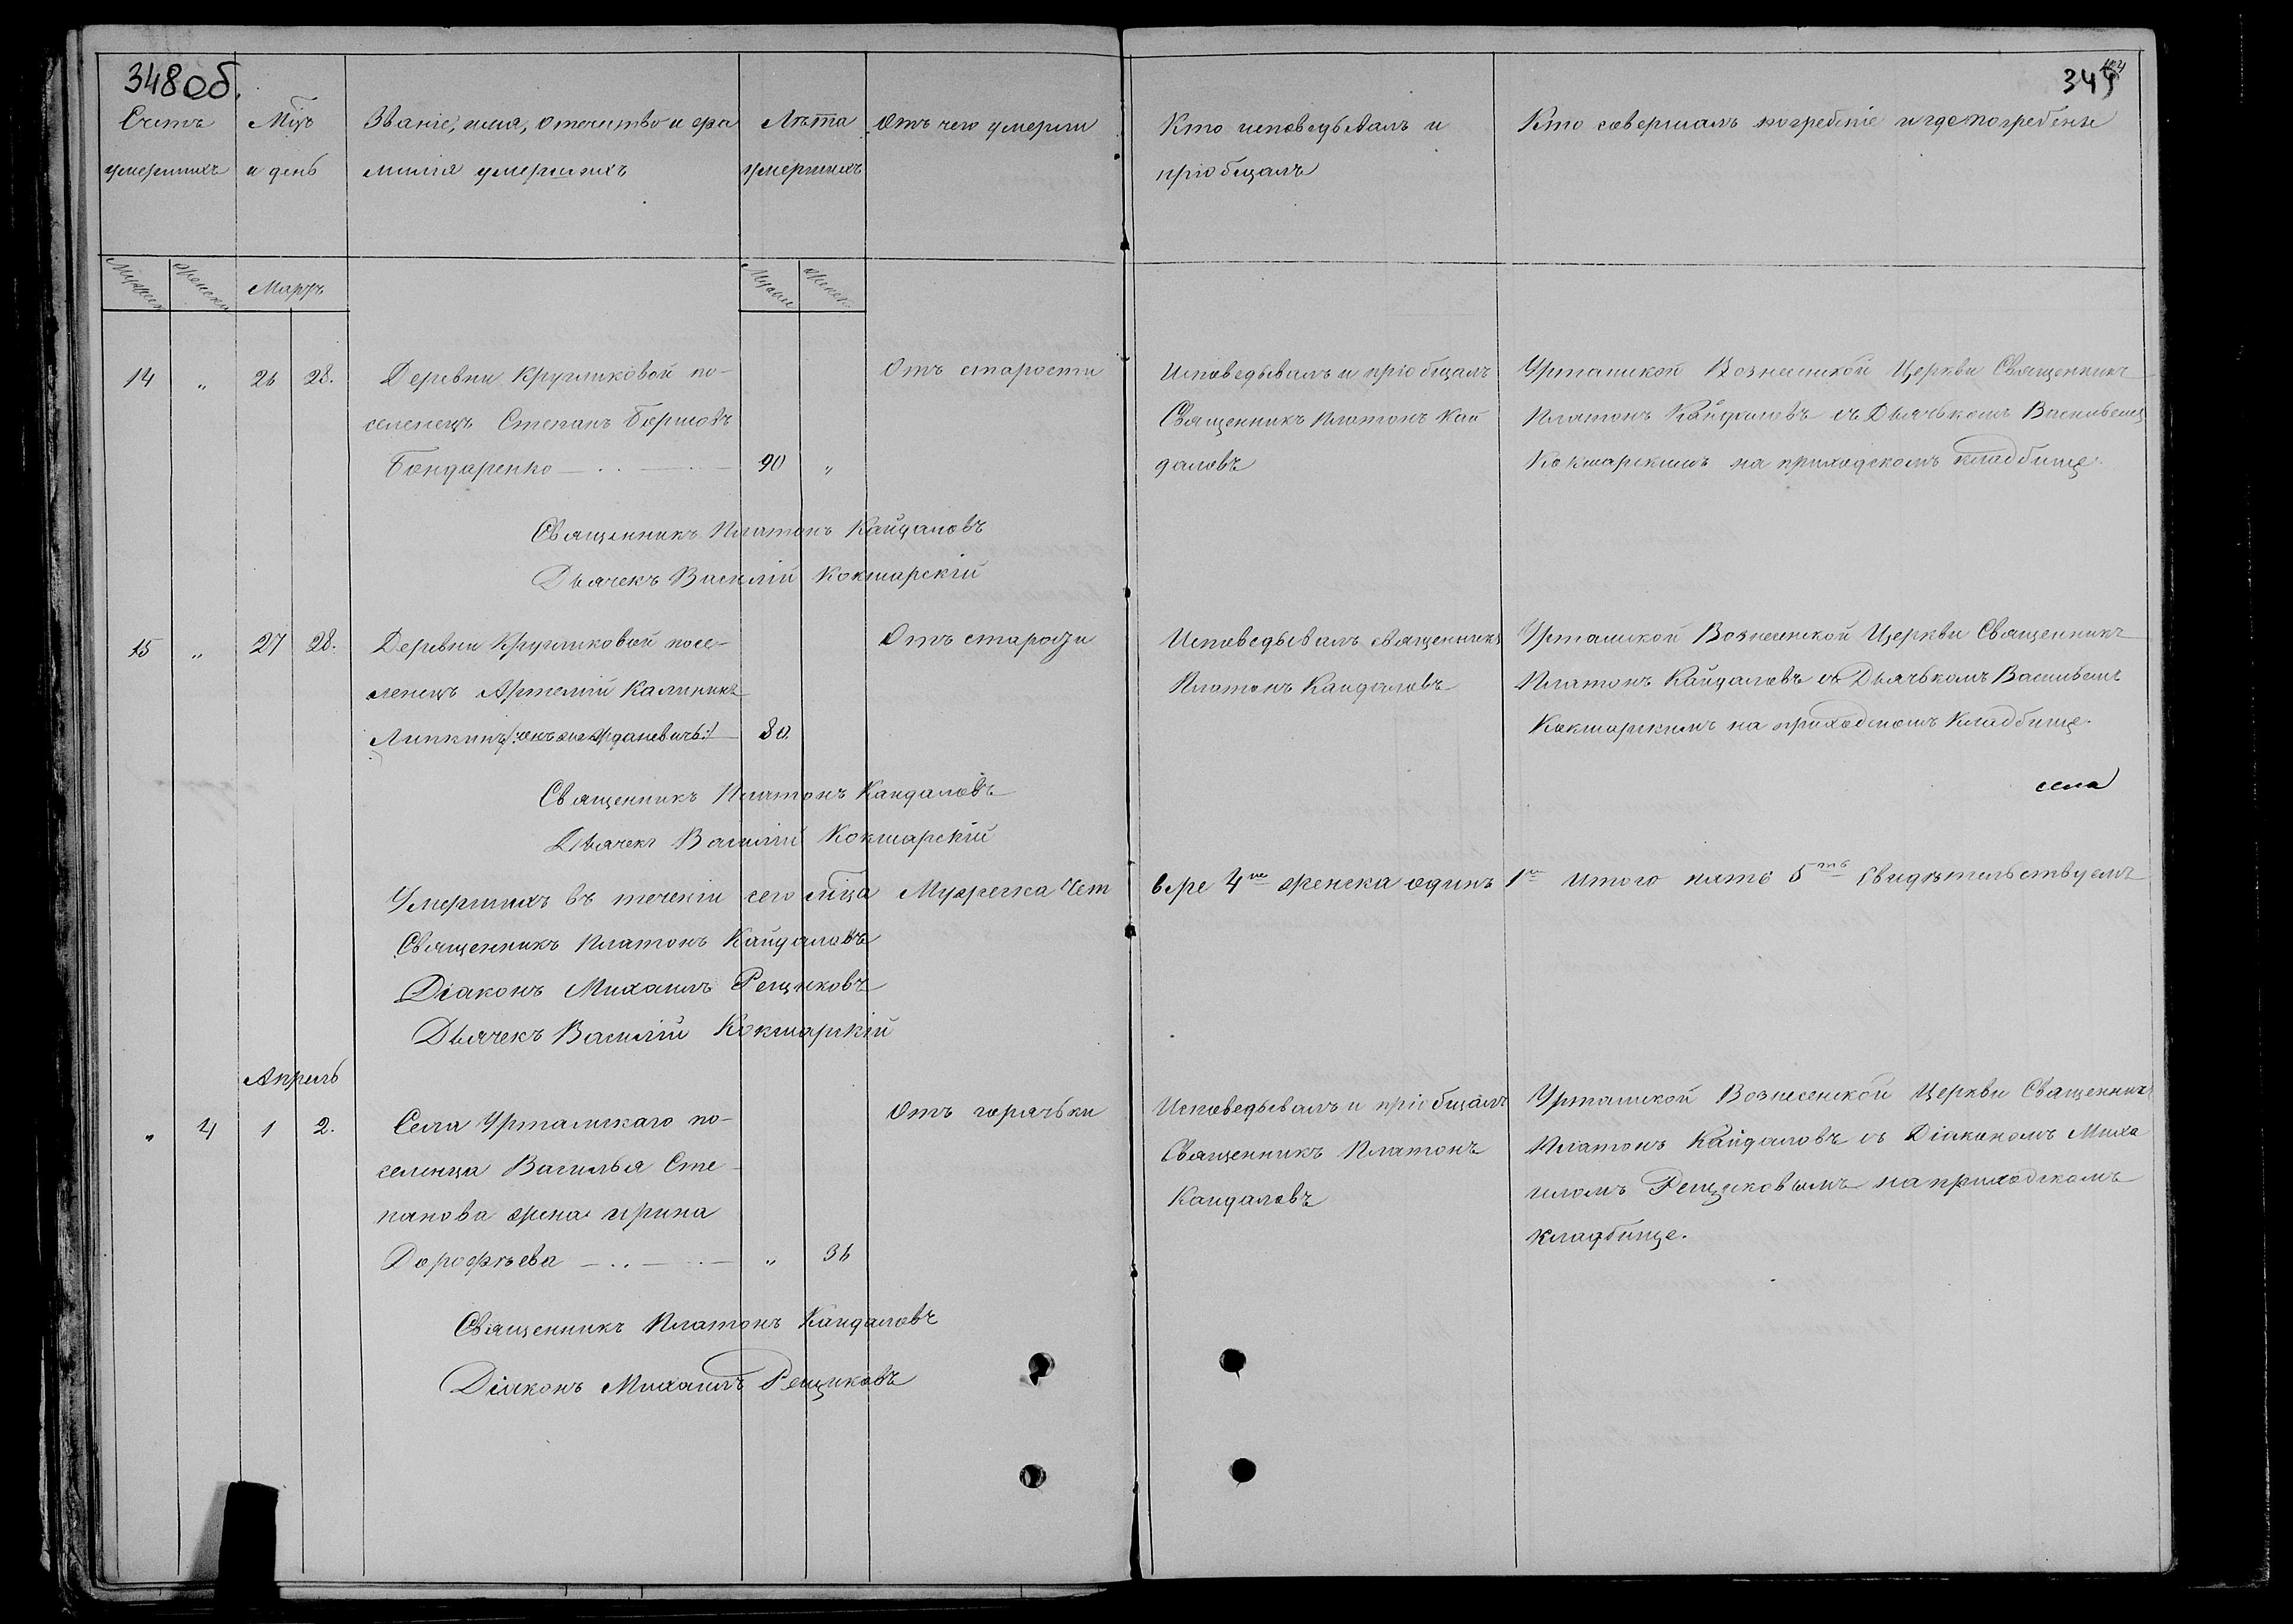 348об.
349
Счетъ умершихъ
Мцъ и день
Званіе, имя, отечитво и фа
милія умершихъ
Лѣта умершихъ
Отъ чего умерли
Кто исповедывалъ и
пріобщалъ
Кто совершалъ погребеніе и где погребены
Мужеск
Женска
Мартъ
Мужеск
Женск
14 „ 26 28. Деревни Кругликовой по-
селенецъ Степанъ Борисовъ
Бондаренко 90 „
Отъ старости
Исповедывалъ и пріобщалъ
Священникъ Платонъ Кай
даловъ
Урташской Вознесенской Церкви Священникъ
Платонъ Кайдаловъ съ Дьячькомъ Васильемъ
Кокшарскимъ на приходскомъ кладбище.
Священникъ Платонъ Кайдаловъ
Дьячекъ Василій Кокшарскій
15 „ 27 28. Деревни Кругликовой посе-
ленецъ Артемій Калининъ
Липкинъ 80.
Отъ старости
Исповедывалъ священникъ
Платонъ Кайдаловъ
Урташской Вознесенской Церкви Священникъ
Платонъ Кайдаловъ съ Дьячькомъ Васильемъ
Кокшарскимъ на приходскомъ Кладбище.
села
Священникъ Платонъ Кайдаловъ
Дьячекъ Василій Кокшарскій
Умершихъ въ теченіи сего мца Мужеска чет
вере 4ре женска одинъ 1нъ итого пять 5ть свидѣтельствуемъ
Священникъ Платонъ Кайдаловъ
Діаконъ Михаилъ Рещиковъ
Дьячекъ Василій Кокшарскій
Апрель
„ 4 1 2. Села Урташскаго по-
селенца Василья Сте-
панова жена Ирина
Дорофѣева „ 36
Отъ горячьки
Исповедывалъ и пріобщалъ
Священникъ Платонъ
Кайдаловъ
Урташской Вознесенской Церкви Священникъ
Платонъ Кайдаловъ съ Діакономъ Миха
иломъ Рещиковымъ на приходскомъ
кладбище.
Священникъ Платонъ Кайдаловъ
Діаконъ Михаилъ Рещиковъ